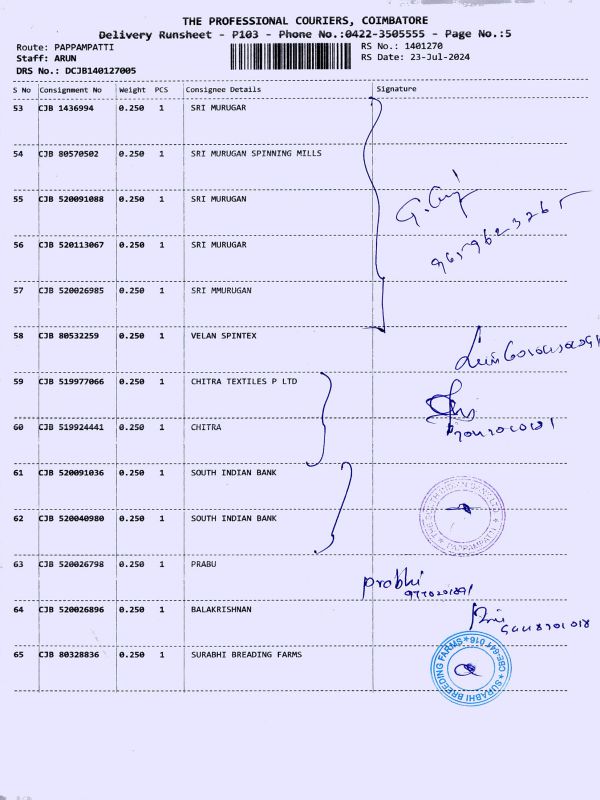 THE PROFESSIONAL COURIERS, COIMBATORE
Delivery Runsheet - P103 - Phone No.:0422-3505555 - Page No.:5
Route: PAPPAMPATTI RS No.: 1401270
Staff: ARUN RS Date: 23-Jul-2024
DRS No.: DCJB140127005
S No Consignment No Weight PCS Consignee Details Signature
53 CJB 1436994 0.250 1 SRI MURUGAR
54 CJB 80570502 0.250 1 SRI MURUGAN SPINNING MILLS
55 CJB 520091088 0.250 1 SRI MURUGAN
56 CJB 520113067 0.250 1 SRI MURUGAR
57 CJB 520026985 0.250 1 SRI MMURUGAN
58 CJB 80532259 0.250 1 VELAN SPINTEX
59 CJB 519977066 0.250 1 CHITRA TEXTILES P LTD
60 CJB 519924441 0.250 1 CHITRA
61 CJB 520091036 0.250 1 SOUTH INDIAN BANK
62 CJB 520040980 0.250 1 SOUTH INDIAN BANK
THE SOUTH INDIAN BANK LTD. PAPPAMPATTI
63 CJB 520026798 0.250 1 PRABU
prabhi
64 CJB 520026896 0.250 1 BALAKRISHNAN
65 CJB 80328836 0.250 1 SURABHI BREADING FARMS
SURABHI BREEDING FARMS * CBE-641 016 *